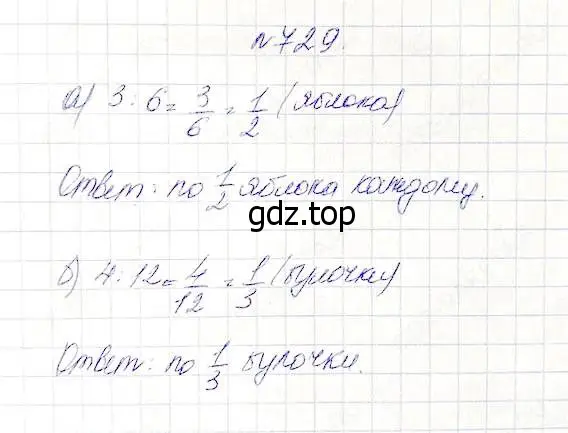 №729.
а) 3 : 6 = 3/6 = 1/2 (яблока)
Ответ: по 1/2 яблока каждому.
gdz.top
б) 4 : 12 = 4/12 = 1/3 (булочки)
Ответ: по 1/3 булочки.